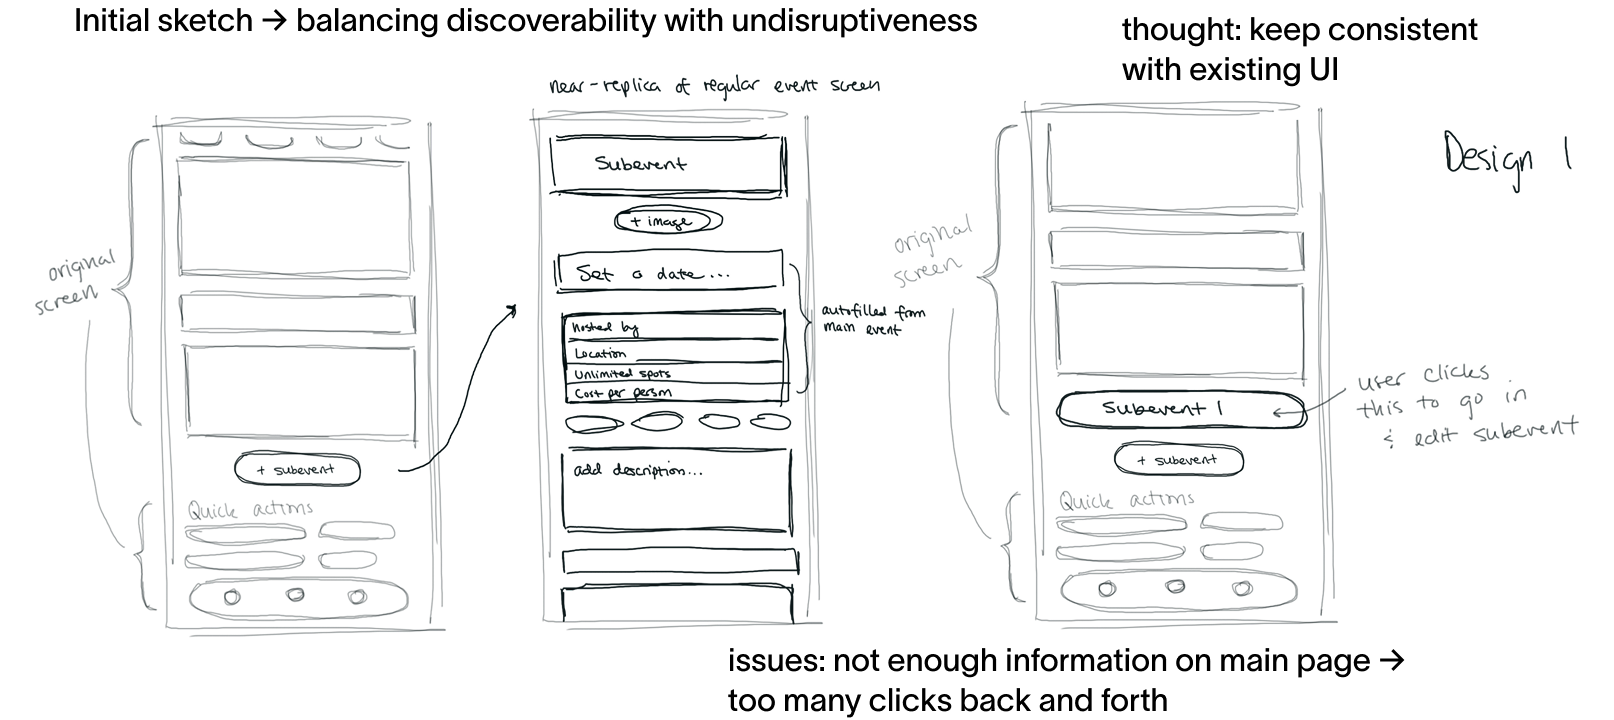 Initial sketch → balancing discoverability with undisruptiveness
thought: keep consistent
with existing UI
near-replica of regular event screen
Design 1
original
screen
+ subevent
Quick actions
Subevent
+ image
Set a date...
hosted by
Location
Unlimited spots
Cost per person
autofilled from
main event
add description...
original
screen
Subevent 1
user clicks
this to go in
& edit subevent
+ subevent
Quick actions
issues: not enough information on main page →
too many clicks back and forth